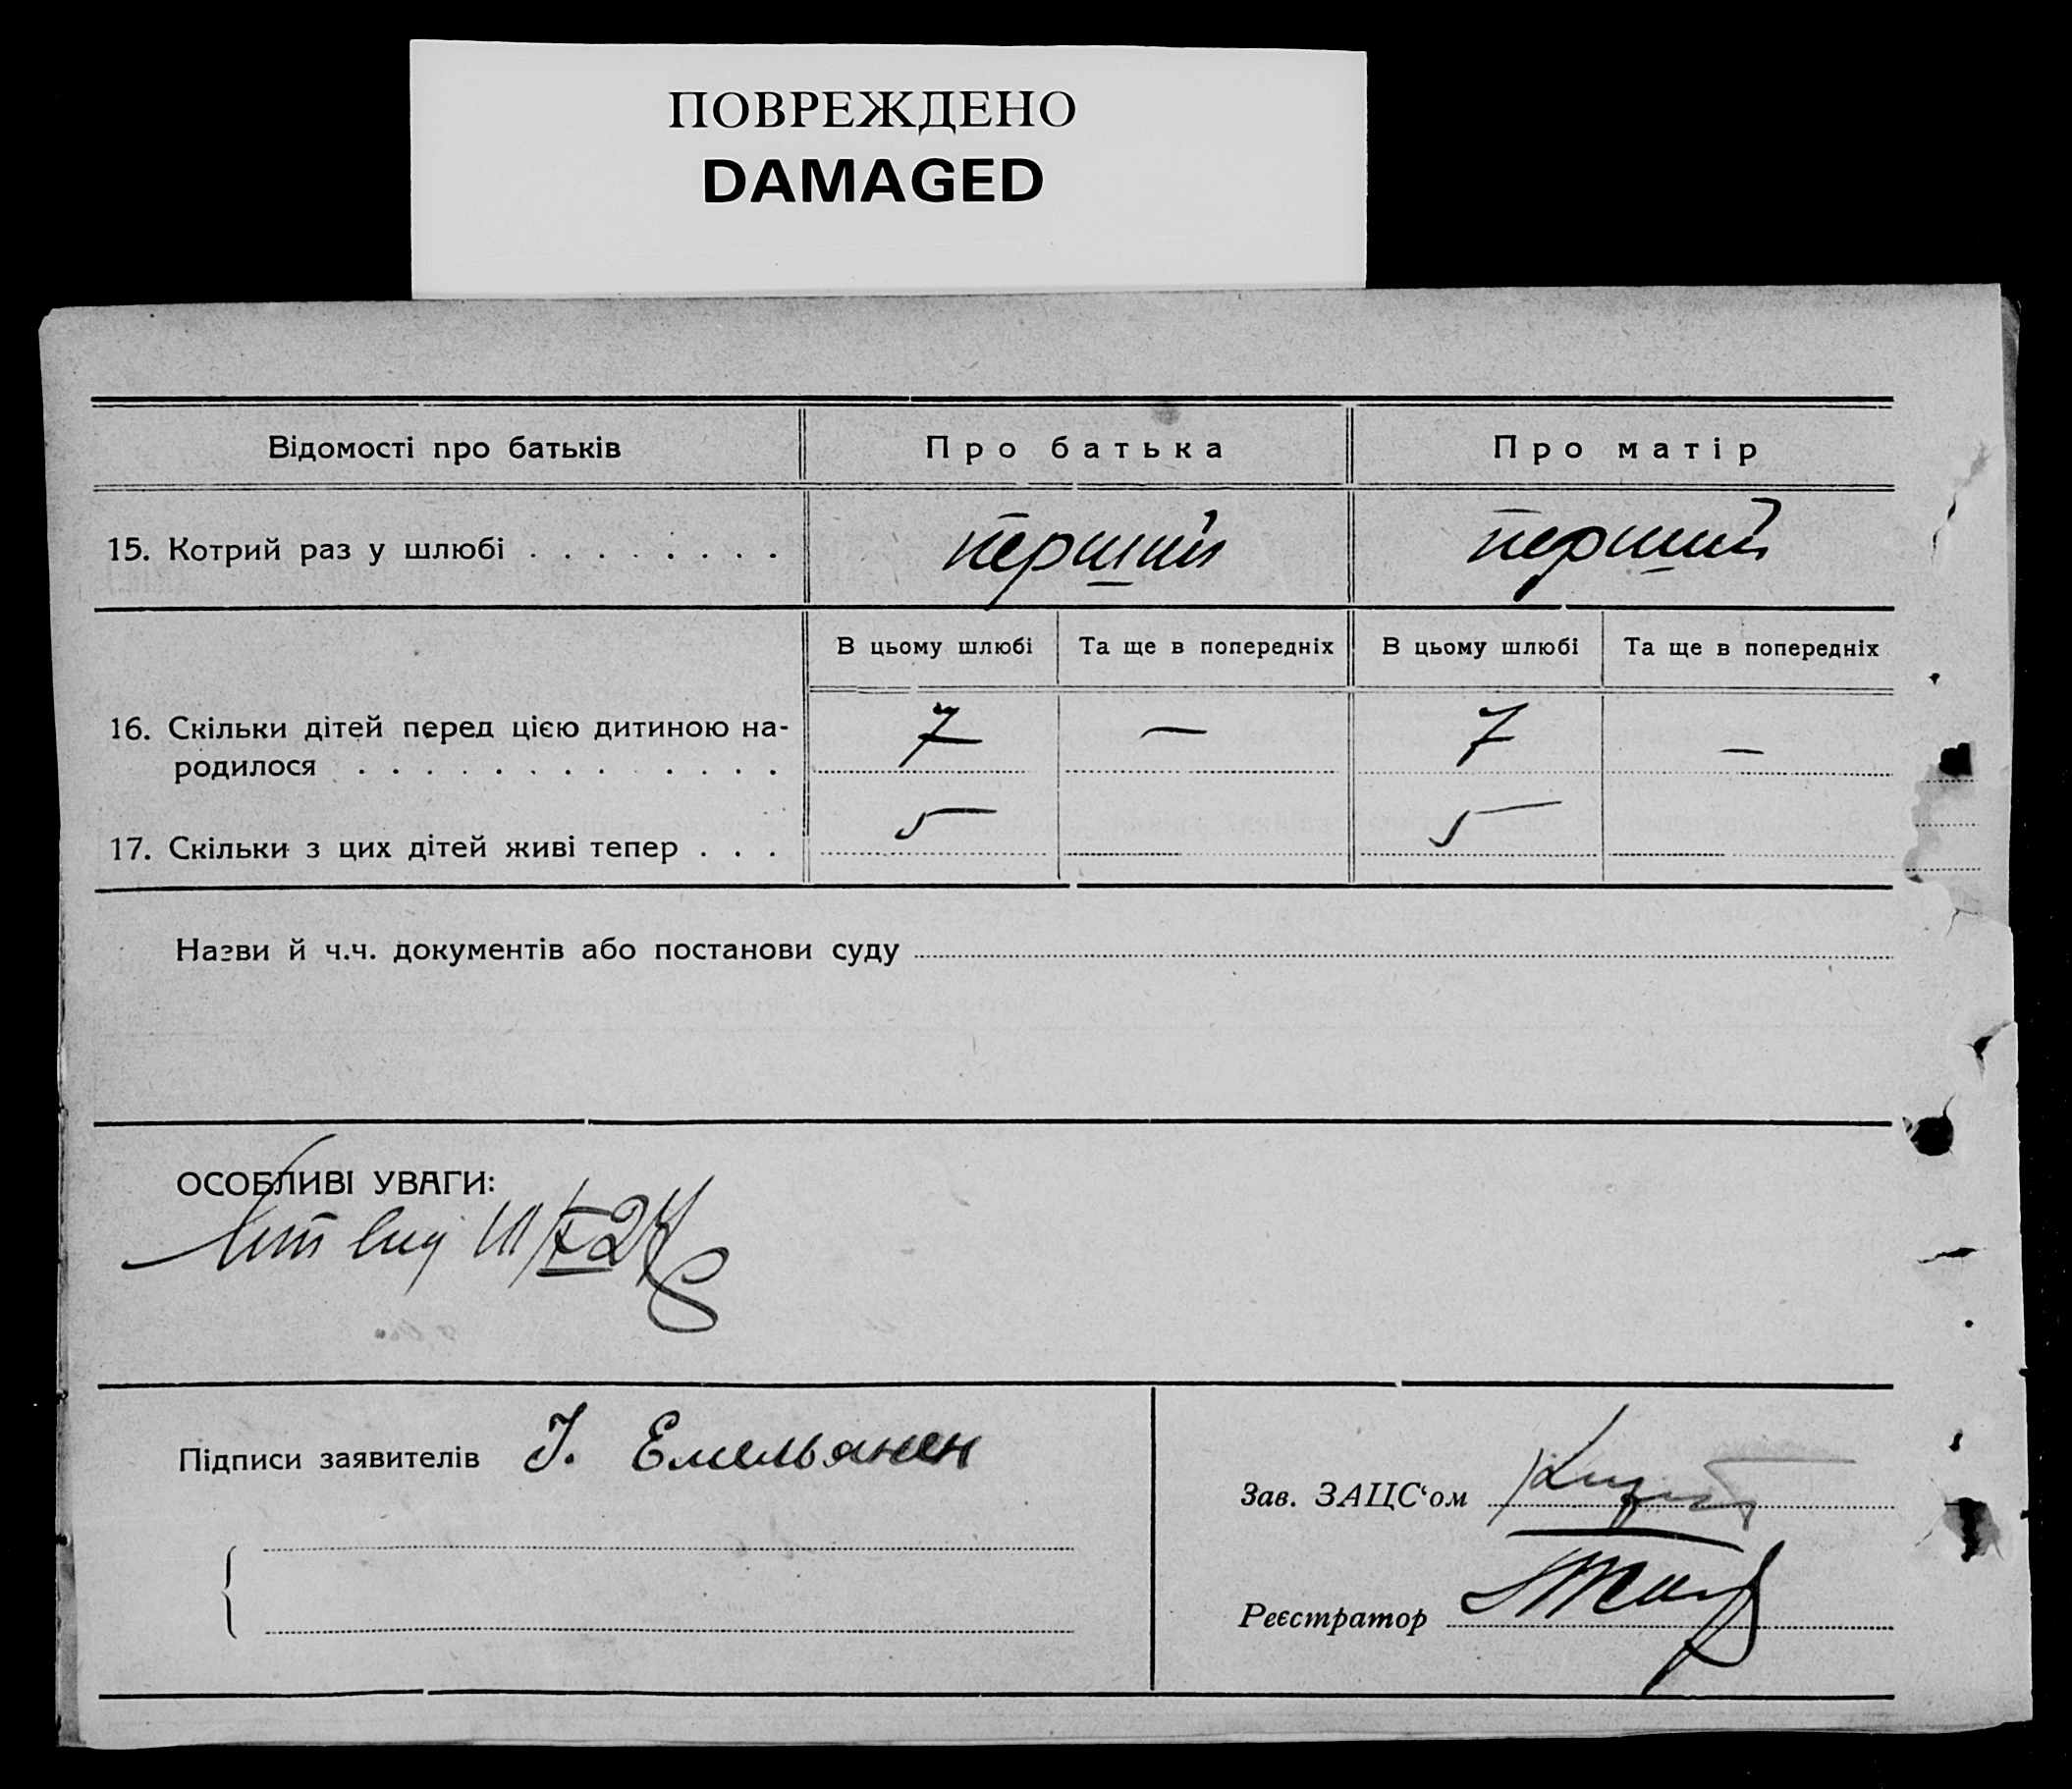 ПОВРЕЖДЕНО
DAMAGED
Відомості про батьків
Про батька
Про матір
15. Котрий раз у шлюбі . . . . . . . .
перший
перший
В цьому шлюбі
Та ще в попередніх
В цьому шлюбі
Та ще в попередніх
16. Скільки дітей перед цією дитиною на-
родилося . . . . . . . . . . . . .
7
—
7
—
17. Скільки з цих дітей живі тепер . . .
5
5
Назви й ч.ч. документів або постанови суду
ОСОБЛИВІ УВАГИ:
Підписи заявителів
Зав. ЗАЦС‘ом
Реєстратор